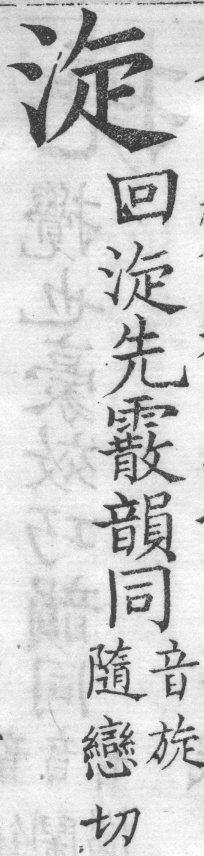 㳬
回㳬先霰韻同
音旋
隨戀切